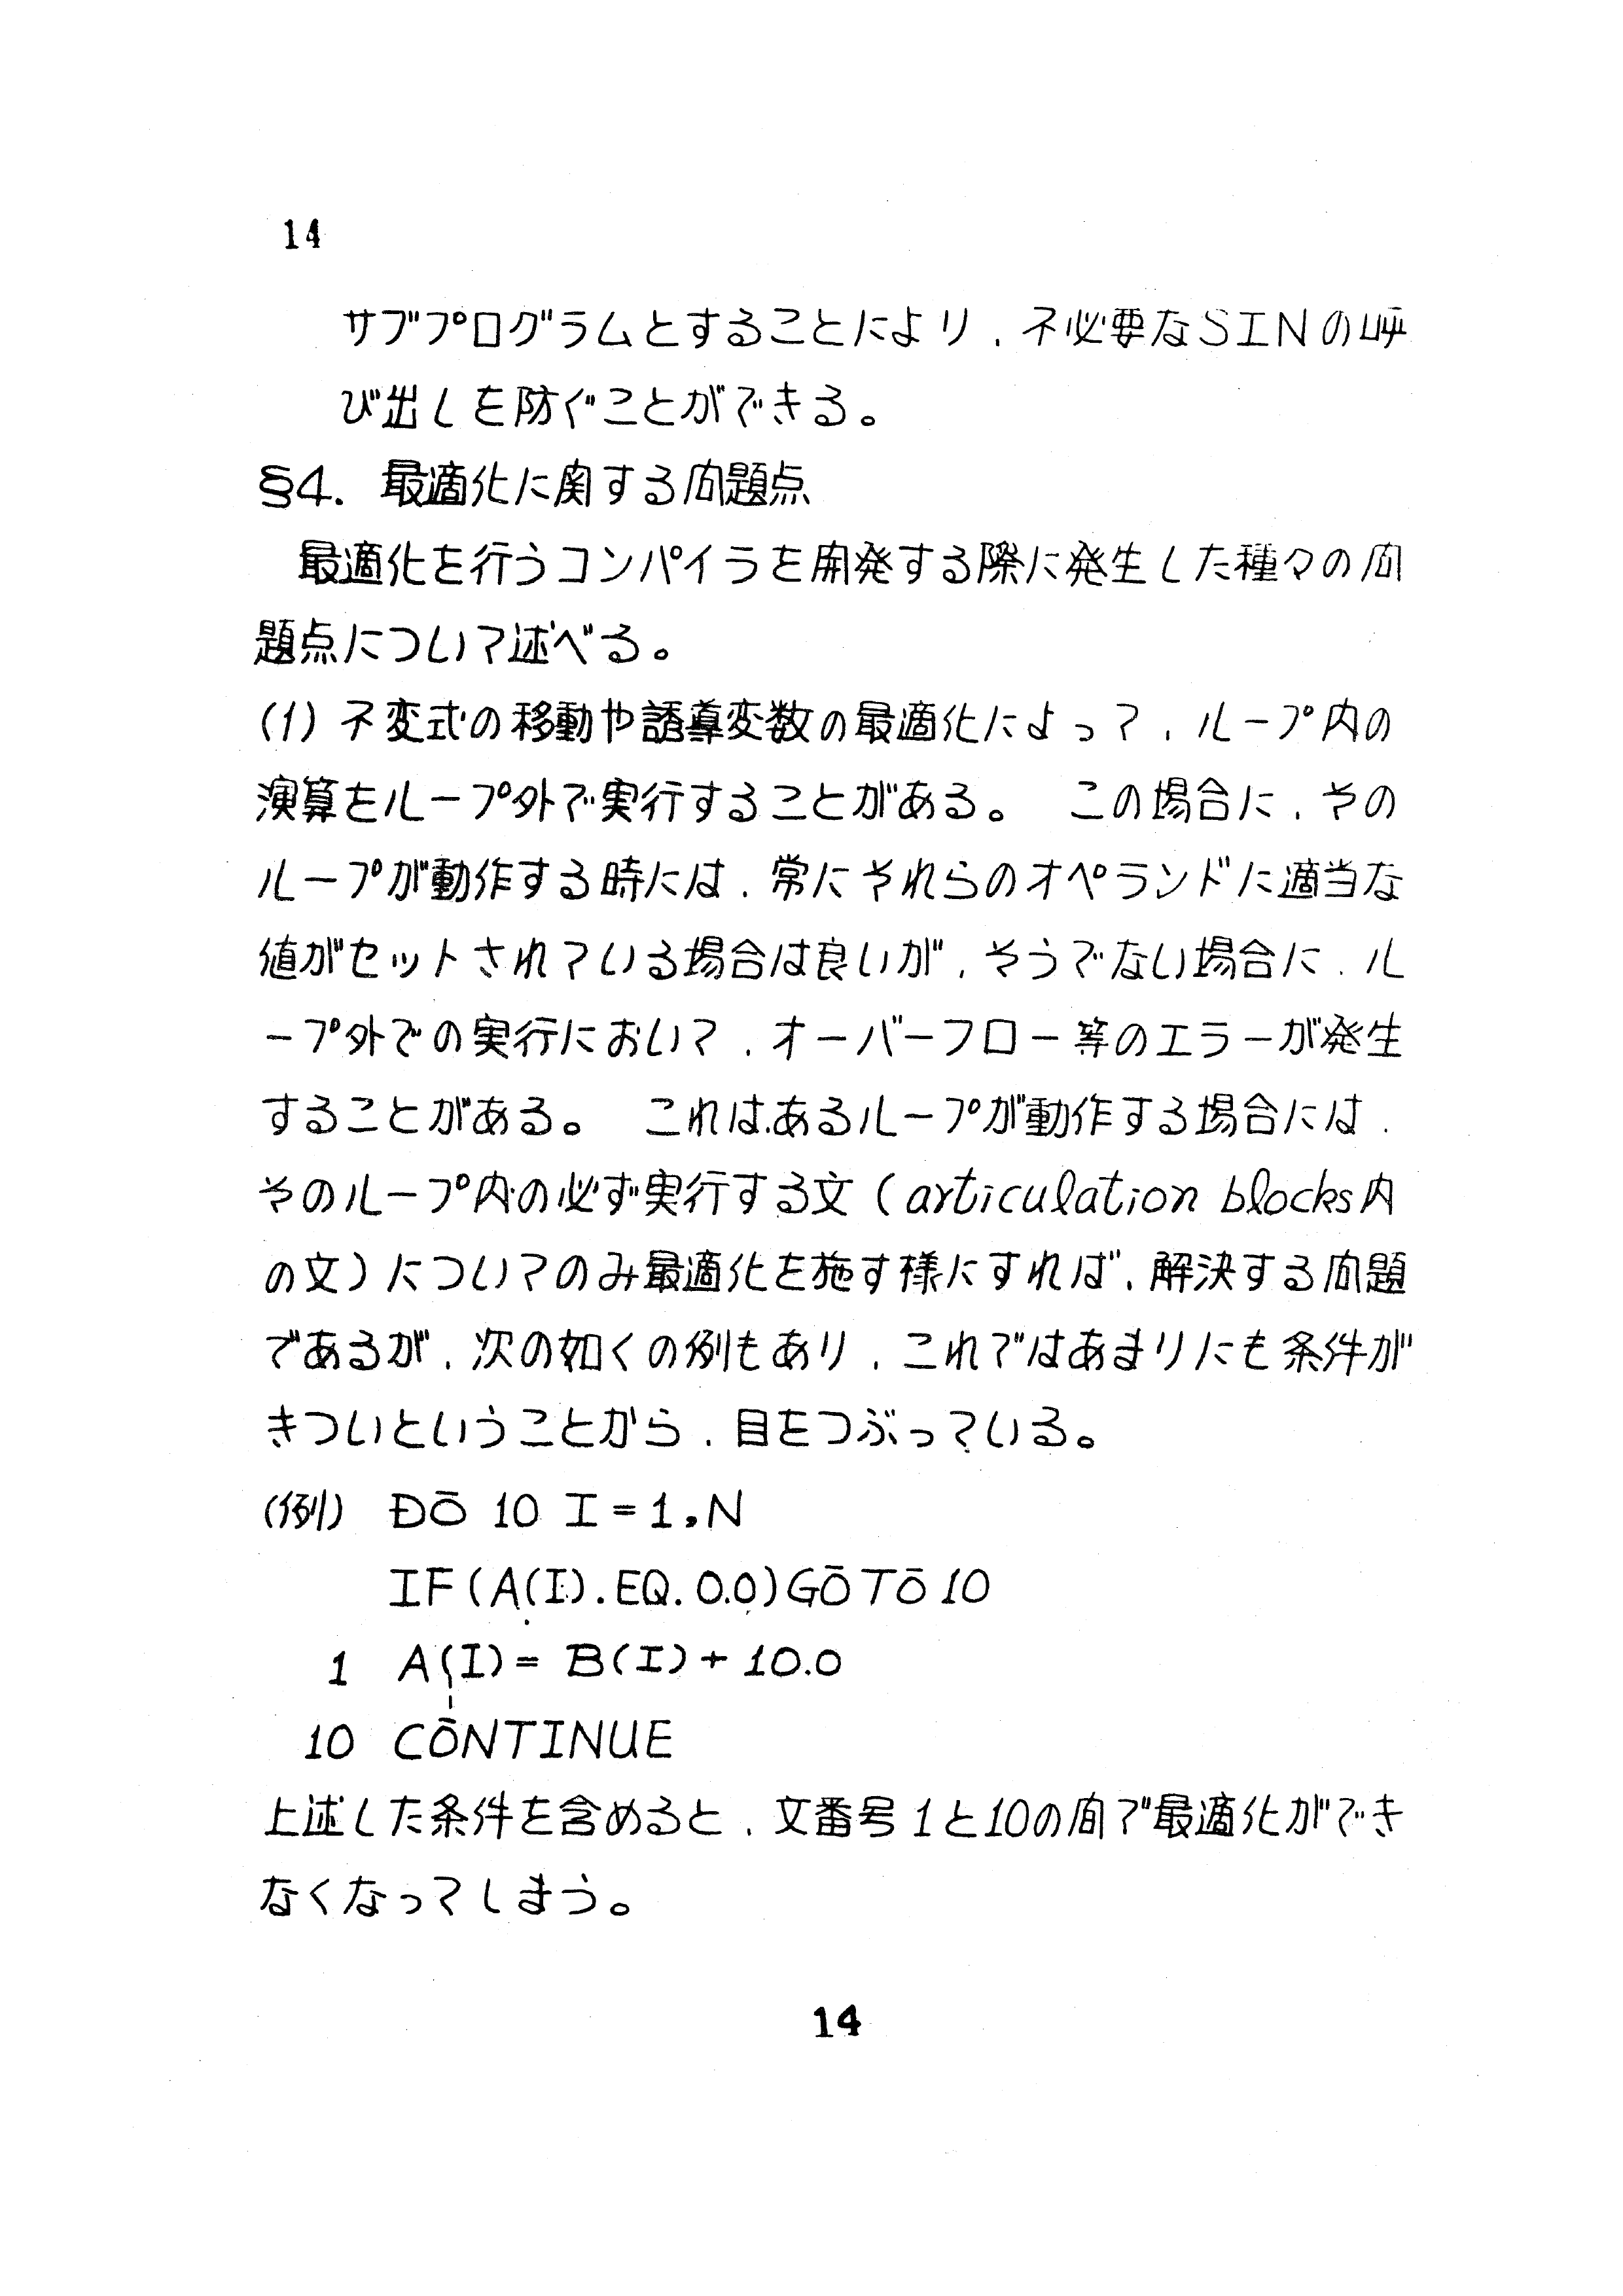 14
サブプログラムとすることにより，不必要なSINの呼
び出しを防ぐことができる。
§4. 最適化に関する問題点
最適化を行うコンパイラを開発する際に発生した種々の問
題点について述べる。
(1) 不変式の移動や誘導変数の最適化によって，ループ内の
演算をループ外で実行することがある。 この場合に，その
ループが動作する時には，常にそれらのオペランドに適当な
値がセットされている場合は良いが，そうでない場合に，ル
ープ外での実行において，オーバーフロー等のエラーが発生
することがある。 これは，あるループが動作する場合には，
そのループ内の必ず実行する文（articulation blocks内
の文）についてのみ最適化を施す様にすれば，解決する問題
であるが，次の如くの例もあり，これではあまりにも条件が
きついということから，目をつぶっている。
(例) ĐŌ 10 I=1,N
IF(A(I).EQ.0.0)GŌTŌ10
1 A(I)=B(I)+10.0
10 CŌNTINUE
上述した条件を含めると，文番号1と10の間で最適化ができ
なくなってしまう。
14